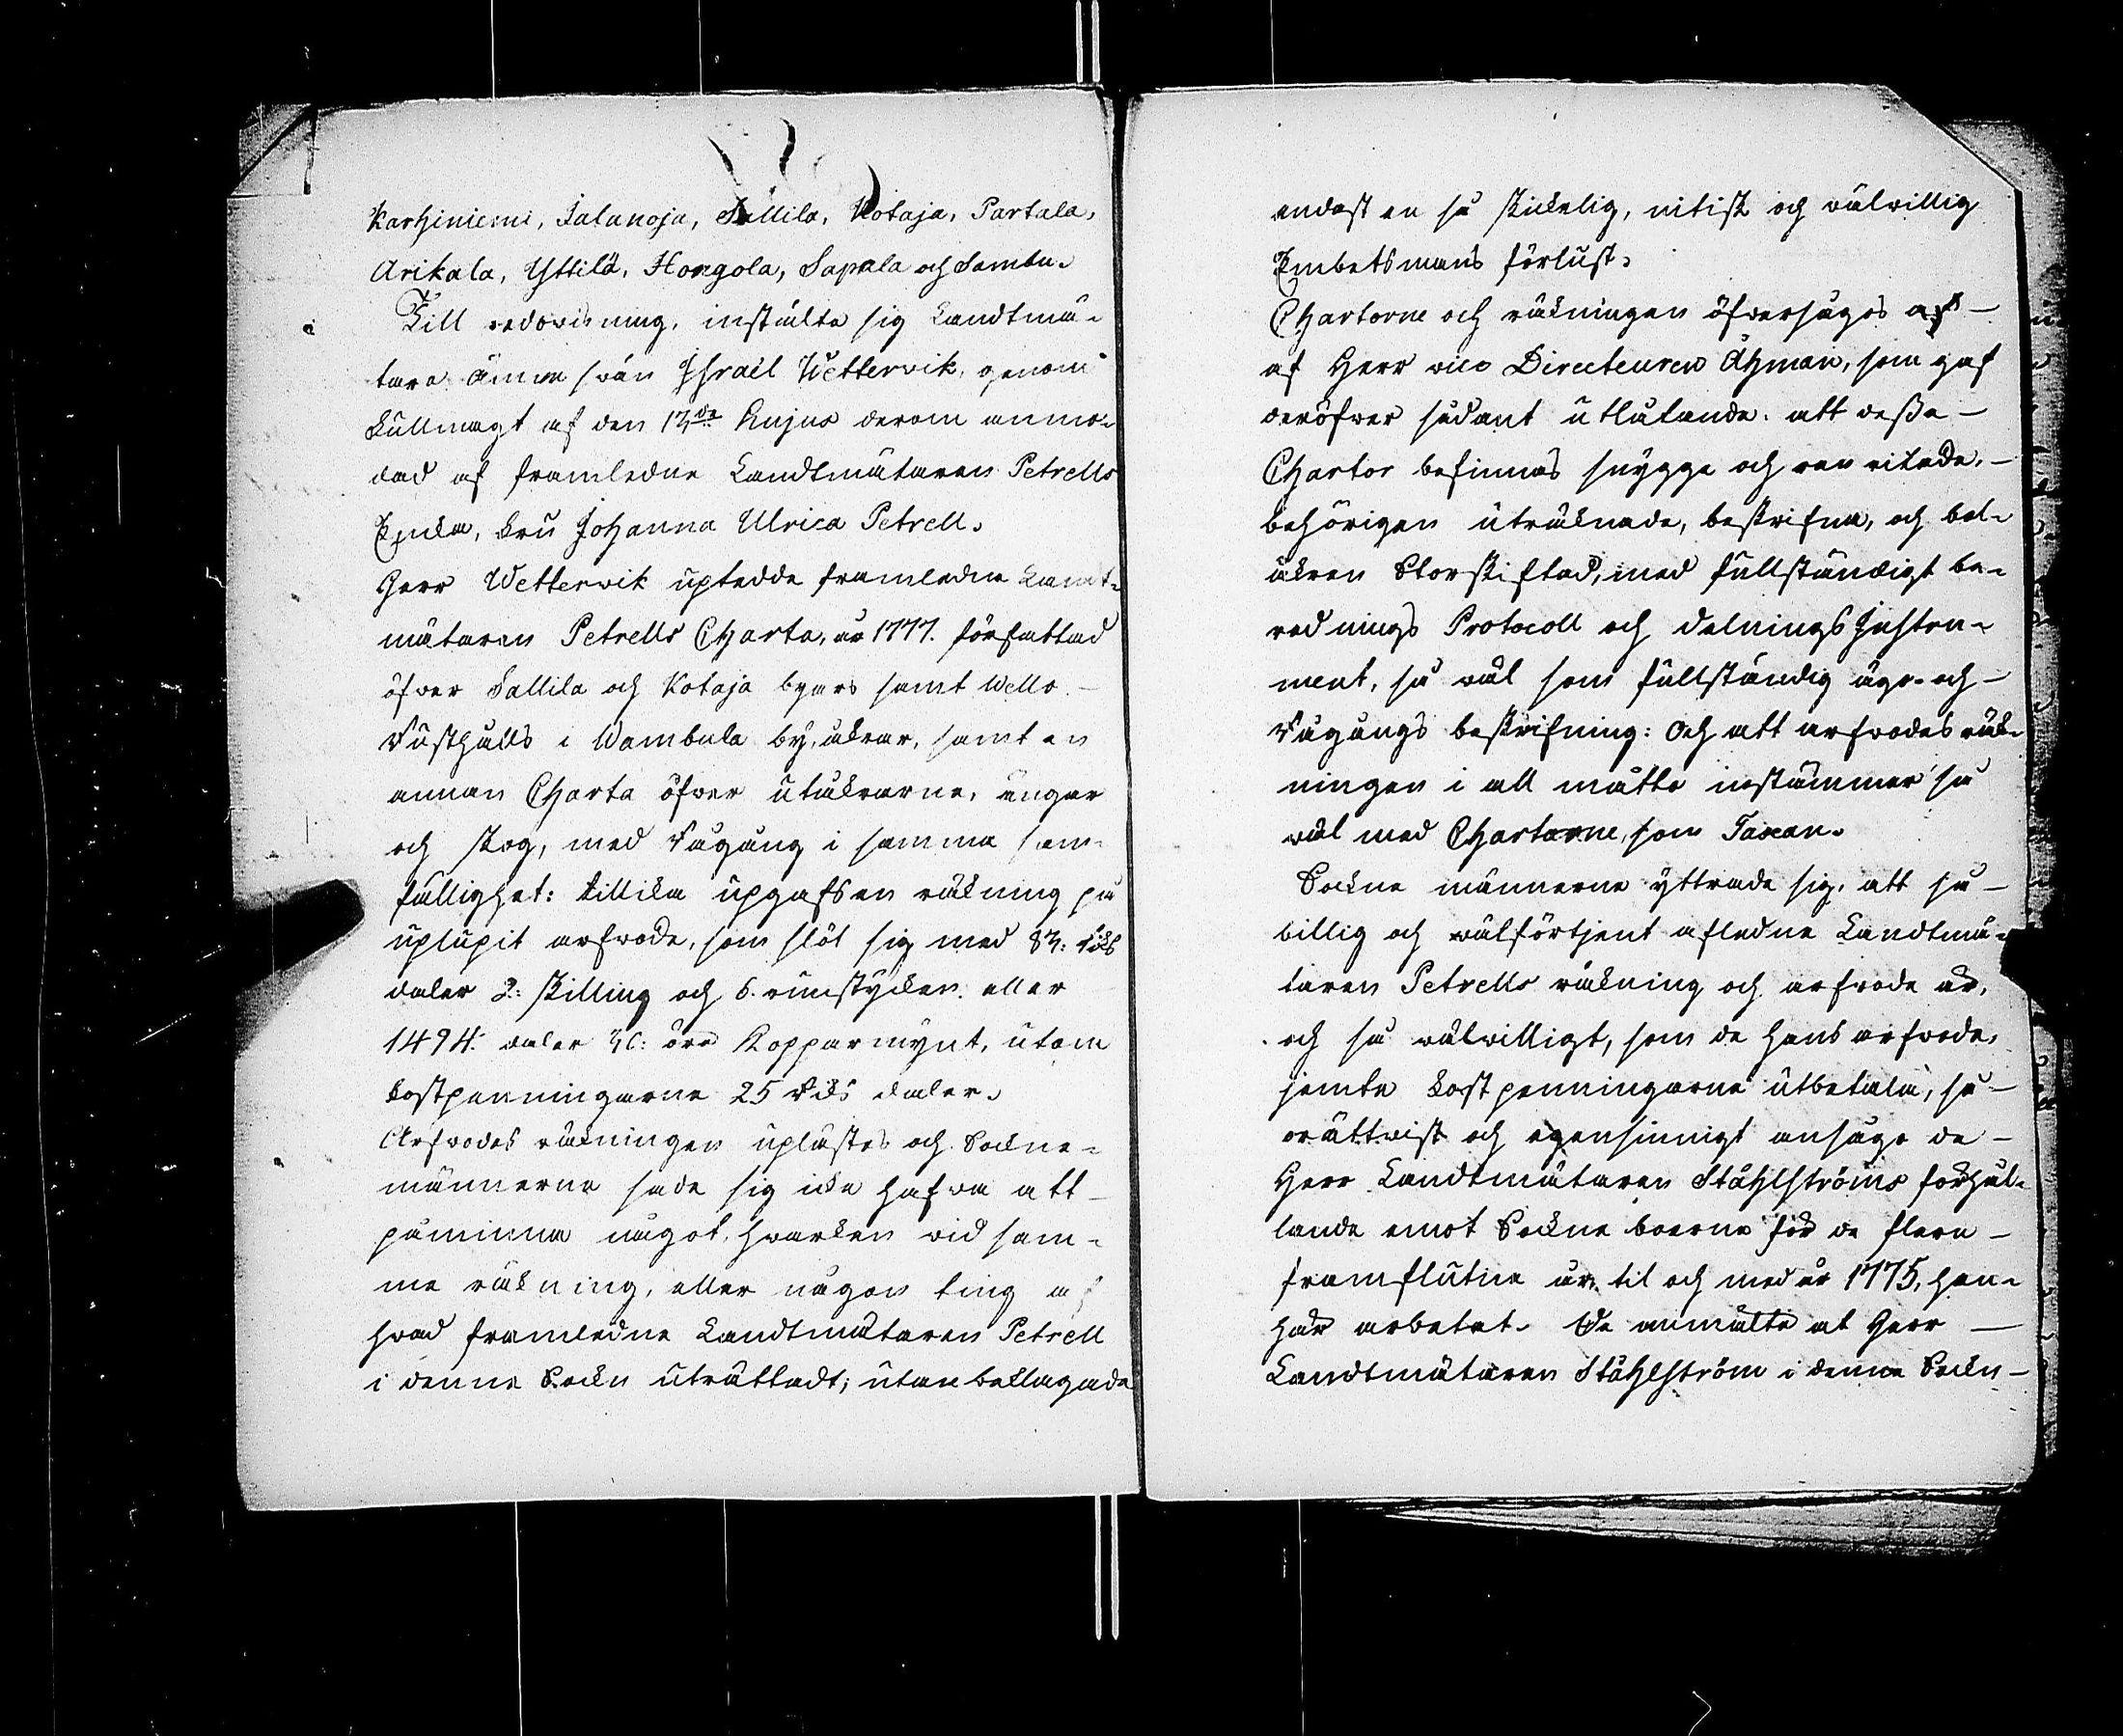 Karhiniemi, Jalanoja, Sallila, Kotaja, Partala,
Arikala, Yttilä, Hongola, Sapala och Samba.
Till redovisning, instälte sig Landtmä-
tare ämne svän Ishraël Wettervik, genom
fullmagt af den 13de hujus derom anmo-
dad af framledne Landtmätaren Petrells
Enka, Fru Johanna Ulrica Petrell.
Herr Wettervik uptedde framledne Landt-
mätaren Petrells Charta, år 1777. författad
öfver Sallila och Kotaja byars samt Wello
Rusthålls i Wambula by, åkrar, samt en
annan Charta öfver utåkrarne, ängar
och skog, med Rågång i samma sam-
fällighet: tillika upgafs en räkning på
uplupit arfvode, som slöt sig med 83: Riks
daler 2: skilling och 6. runstycken eller
1494: daler 30: öre Kopparmynt, utom
kostpenningarne 25 Riks daler.
Arfvodes räkningen uplästes och Sockne-
männerne sade sig icke hafva att
påminna något, hvarken vid sam-
me räkning, eller någon ting af
hvad framledne Landtmätaren Petrell
i denne Sockn uträttadt; utan beklagade
endast en så skickelig, nitisk och välvillig
Embetsmans förlust.
Chartorne och räkningen öfversågos af
af Herr vice Directeuren Åhman, som gaf
deröfver sådant utlåtande: att dessa
Chartor befinnas snygge och ren ritade,
behörigen uträknade, beskrifne, och bol-
åkren Storskiftad, med fullständigt be-
rednings Protocoll och delnings Instru-
ment, så väl som fullständig ägo- och
Rågångs beskrifning: Och att arfvodes räk-
ningen i all måtto instämmer så
väl med Chartorne, som Taxan.
Sockne männerne yttrade sig, att så
billig och välförtjent afledne Landtmä-
taren Petrells räkning och arfvode är,
och så välvilligt, som de hans arfvode,
jemte kostpenningarne utbetala, så
orättvist och egensinnigt ansågo de
Herr Landtmätaren Ståhlströms förhål-
lande emot Sockne boerne för de flere
framflutne år, til och med år 1775, han
här arbetat. De anmälte at Herr
Landtmätaren Ståhlström i denne Sockn